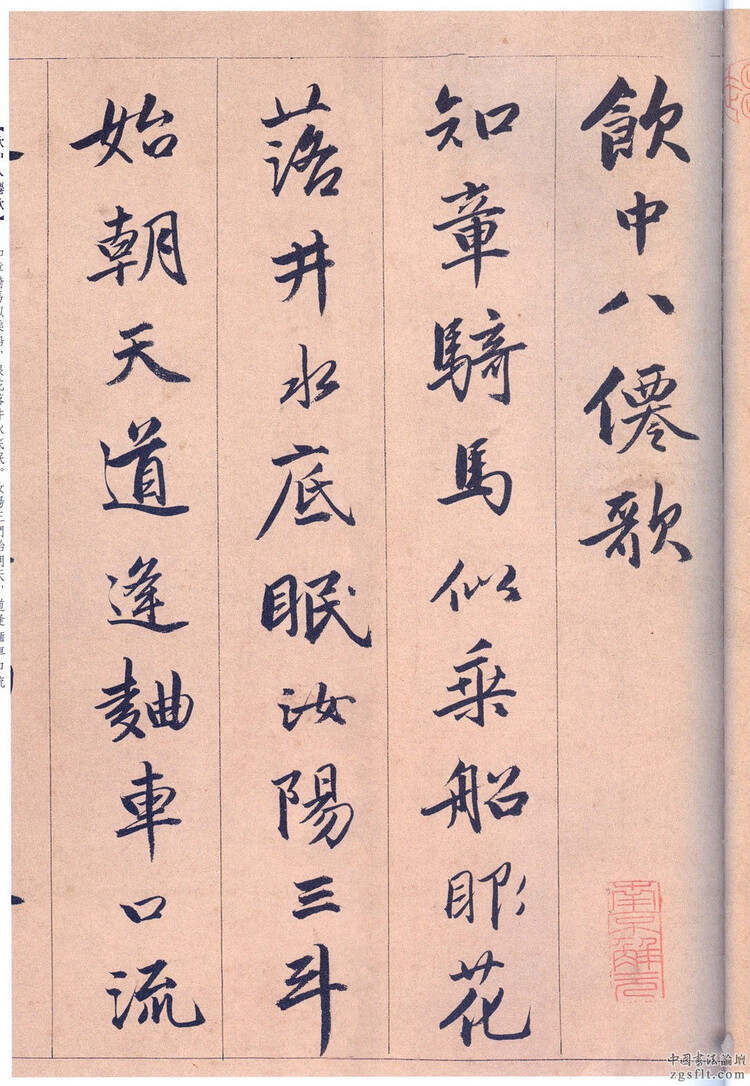 飲中八僊歌
知章騎馬似乗船眼花
落井水底眠汝陽三斗
始朝天道逢麯車口流
南京解元
中國書法論壇
zgsflt.com